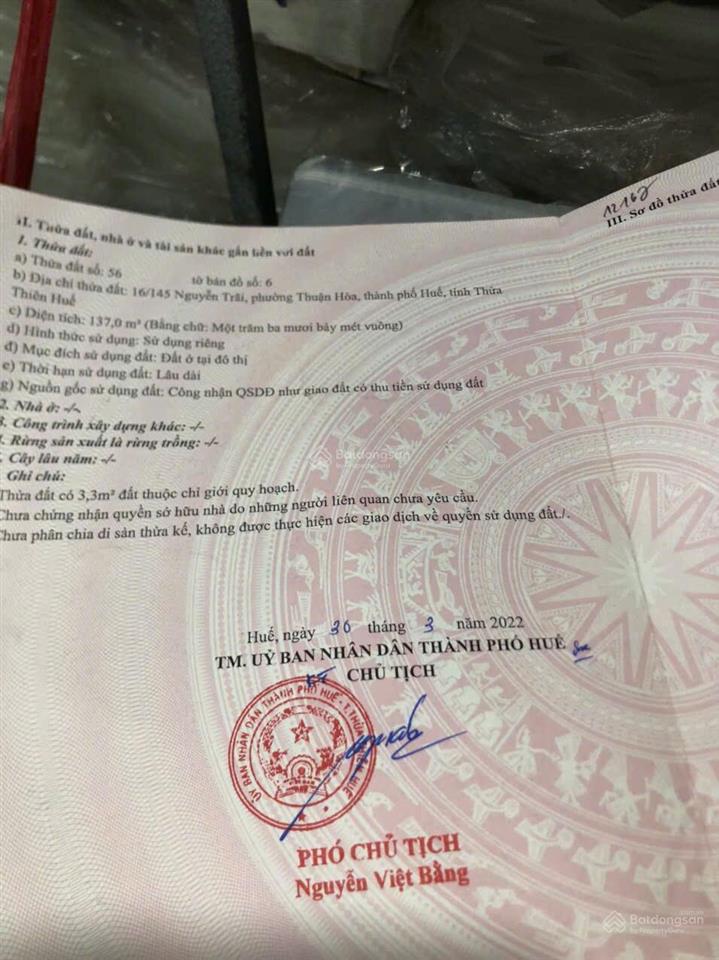 12162
III. Sơ đồ thửa đất
II. Thửa đất, nhà ở và tài sản khác gắn liền với đất
1. Thửa đất:
a) Thửa đất số: 56 tờ bản đồ số: 6
b) Địa chỉ thửa đất: 16/145 Nguyễn Trãi, phường Thuận Hòa, thành phố Huế, tỉnh Thừa
Thiên Huế
c) Diện tích: 137,0 m² (Bằng chữ: Một trăm ba mươi bảy mét vuông)
d) Hình thức sử dụng: Sử dụng riêng
đ) Mục đích sử dụng đất: Đất ở tại đô thị
e) Thời hạn sử dụng đất: Lâu dài
g) Nguồn gốc sử dụng đất: Công nhận QSDĐ như giao đất có thu tiền sử dụng đất
2. Nhà ở: -/-
3. Công trình xây dựng khác: -/-
. Rừng sản xuất là rừng trồng: -/-
. Cây lâu năm: -/-
Ghi chú:
Thửa đất có 3,3m² đất thuộc chỉ giới quy hoạch.
Chưa chứng nhận quyền sở hữu nhà do những người liên quan chưa yêu cầu.
Chưa phân chia di sản thừa kế, không được thực hiện các giao dịch về quyền sử dụng đất./.
Huế, ngày 30 tháng 3 năm 2022
TM. UỶ BAN NHÂN DÂN THÀNH PHỐ HUẾ
KT CHỦ TỊCH
ỦY BAN NHÂN DÂN THÀNH PHỐ HUẾ - T.THỪA THIÊN HUẾ
PHÓ CHỦ TỊCH
Nguyễn Việt Bằng
Batdongsan
by PropertyGuru
Batdongsan
by PropertyGuru